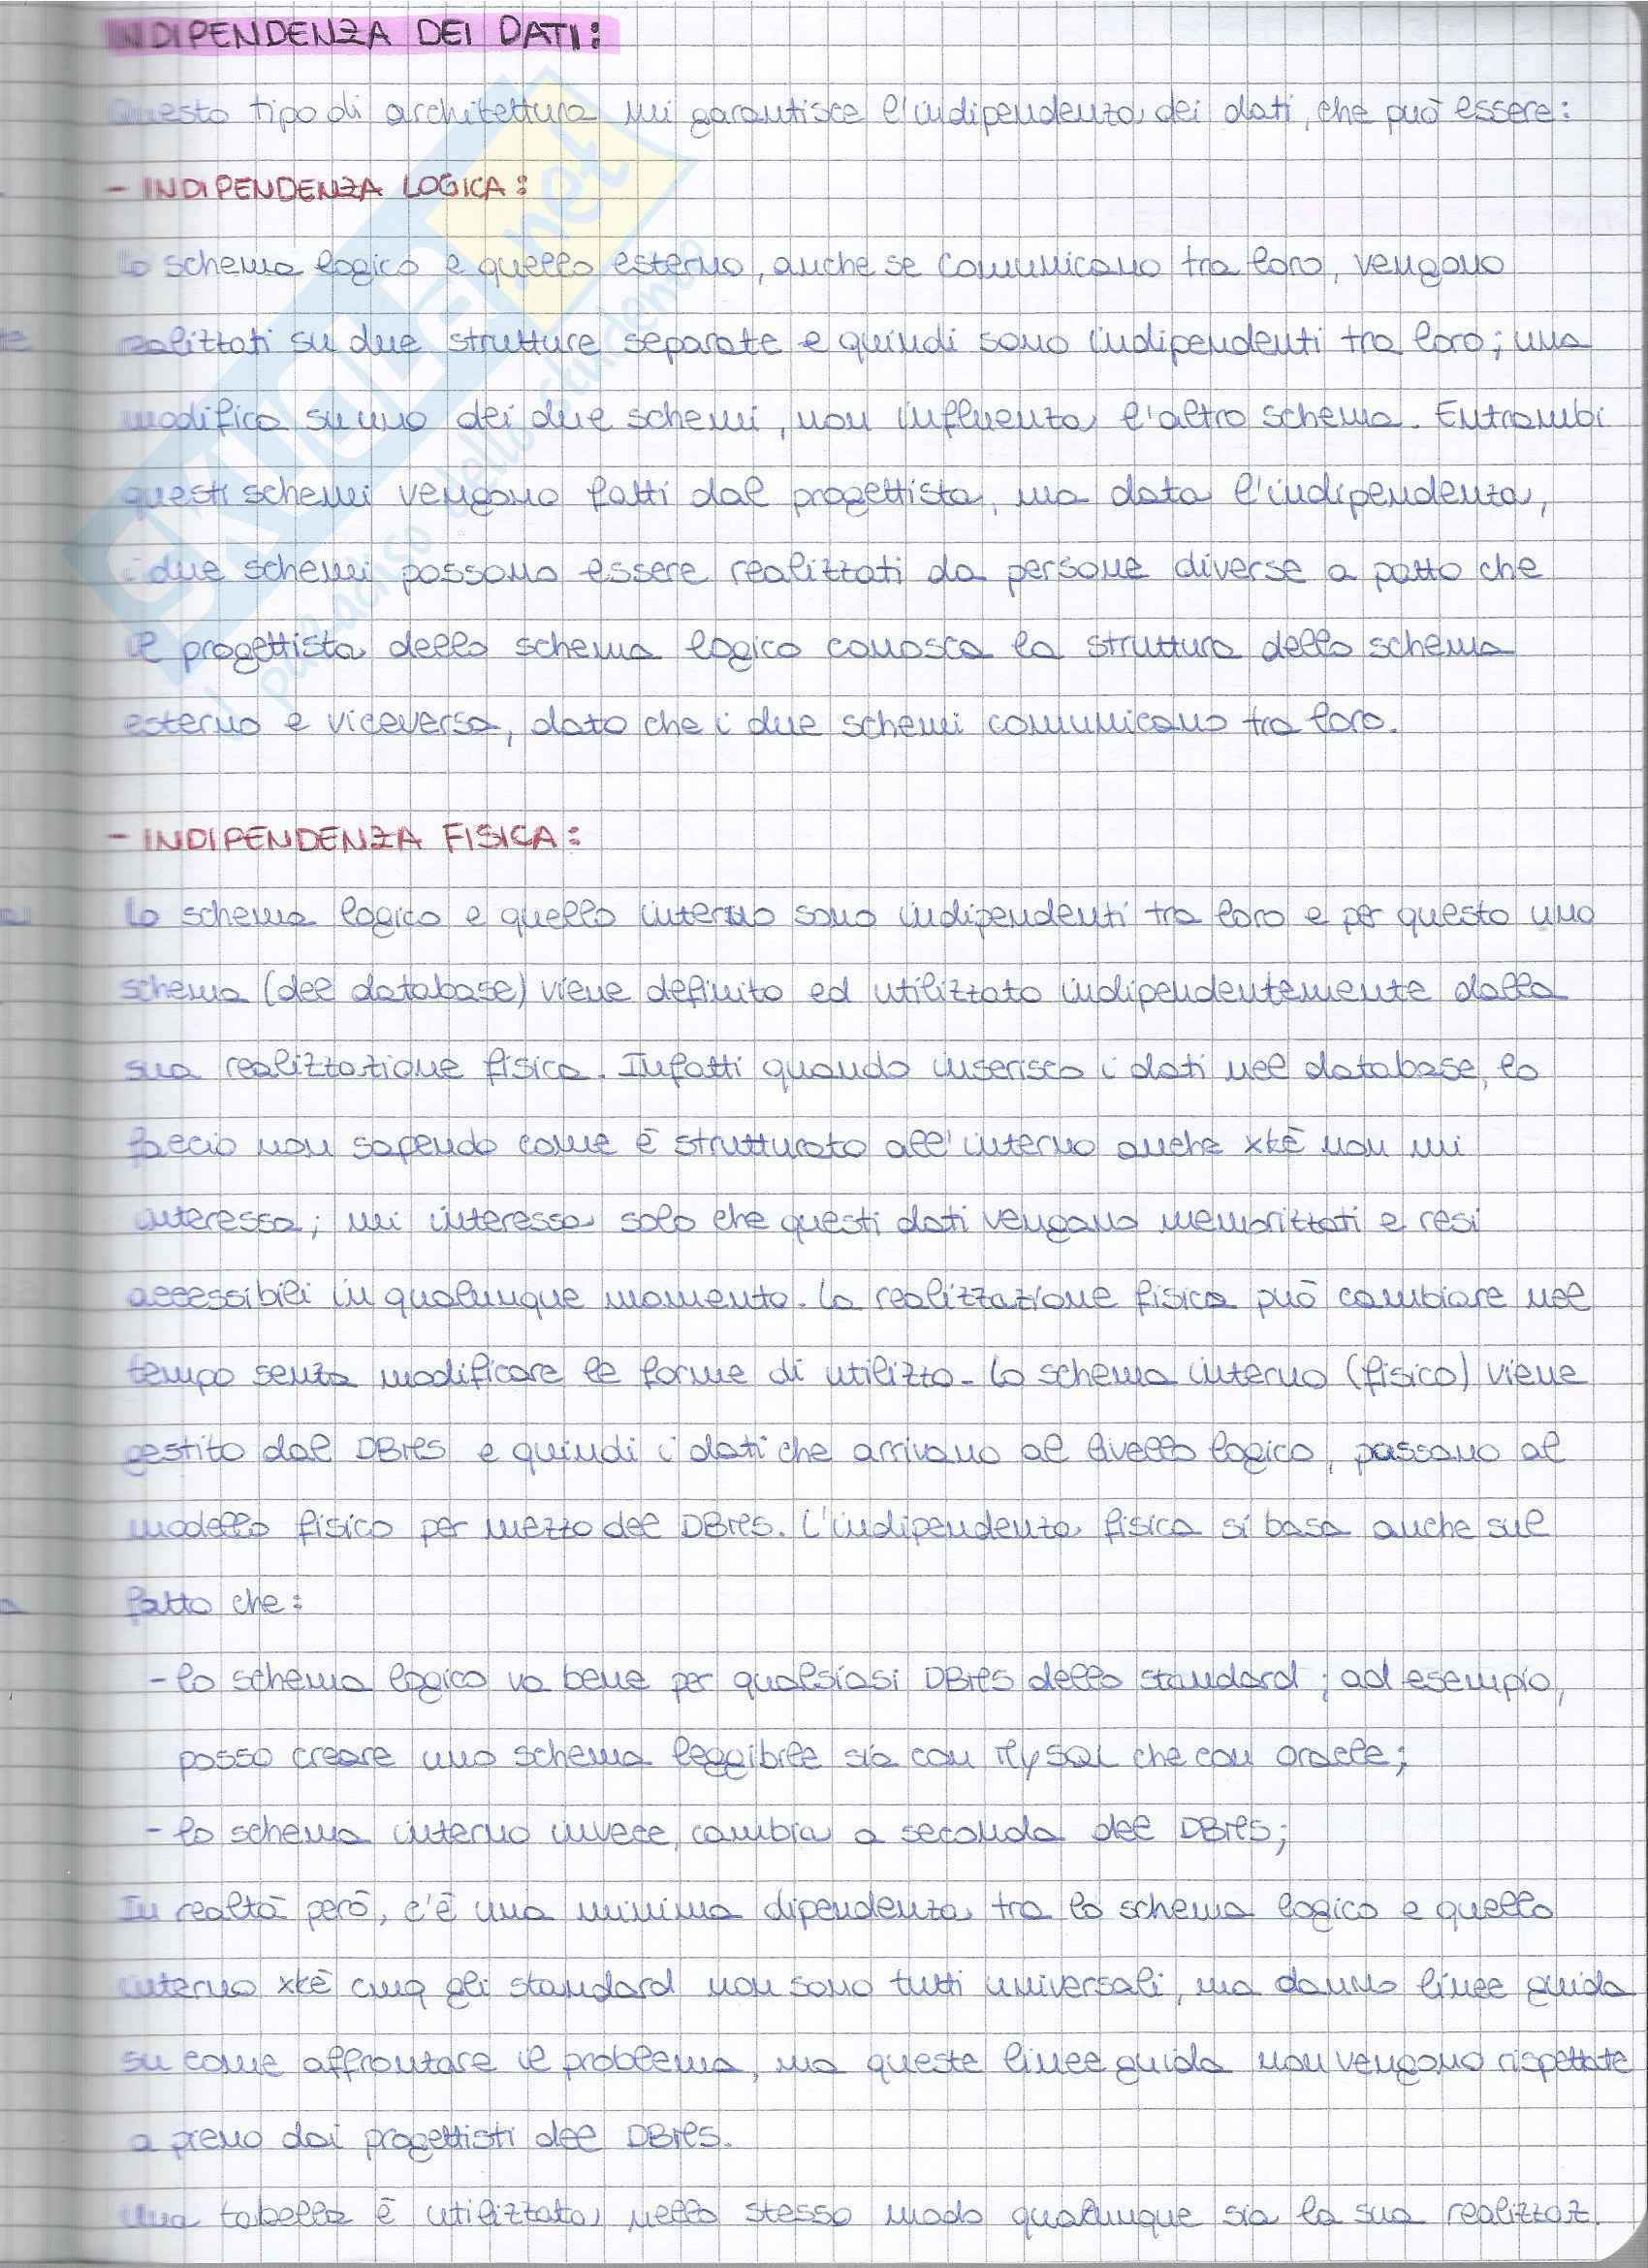 INDIPENDENZA DEI DATI:
Questo tipo di architettura mi garantisce l'indipendenza dei dati, che può essere:
- INDIPENDENZA LOGICA:
Lo schema logico e quello esterno, anche se comunicano tra loro, vengono
realizzati su due strutture separate e quindi sono indipendenti tra loro; una
modifica su uno dei due schemi, non influenza l'altro schema. Entrambi
questi schemi vengono fatti dal progettista, ma data l'indipendenza,
i due schemi possono essere realizzati da persone diverse a patto che
il progettista dello schema logico conosca la struttura dello schema
esterno e viceversa, dato che i due schemi comunicano tra loro.
- INDIPENDENZA FISICA:
Lo schema logico e quello interno sono indipendenti tra loro e per questo uno
schema (del database) viene definito ed utilizzato indipendentemente dalla
sua realizzazione fisica. Infatti quando inserisco i dati nel database, lo
faccio non sapendo come è strutturato all'interno anche xkè non mi
interessa; mi interessa solo che questi dati vengano memorizzati e resi
accessibili in qualunque momento. La realizzazione fisica può cambiare nel
tempo senza modificare le forme di utilizzo. Lo schema interno (fisico) viene
gestito dal DBMS e quindi i dati che arrivano al livello logico, passano al
modello fisico per mezzo del DBMS. L'indipendenza fisica si basa anche sul
fatto che:
- lo schema logico va bene per qualsiasi DBMS dello standard; ad esempio,
posso creare uno schema leggibile sia con MySQL che con oracle;
- lo schema interno invece, cambia a seconda del DBMS;
In realtà però, c'è una minima dipendenza tra lo schema logico e quello
interno xkè cmq gli standard non sono tutti universali, ma danno linee guida
su come affrontare il problema, ma queste linee guida non vengono rispettate
a pieno dai progettisti del DBMS.
Una tabella è utilizzata nello stesso modo qualunque sia la sua realizzaz.
SKUOLA.net
il paradiso dello studente